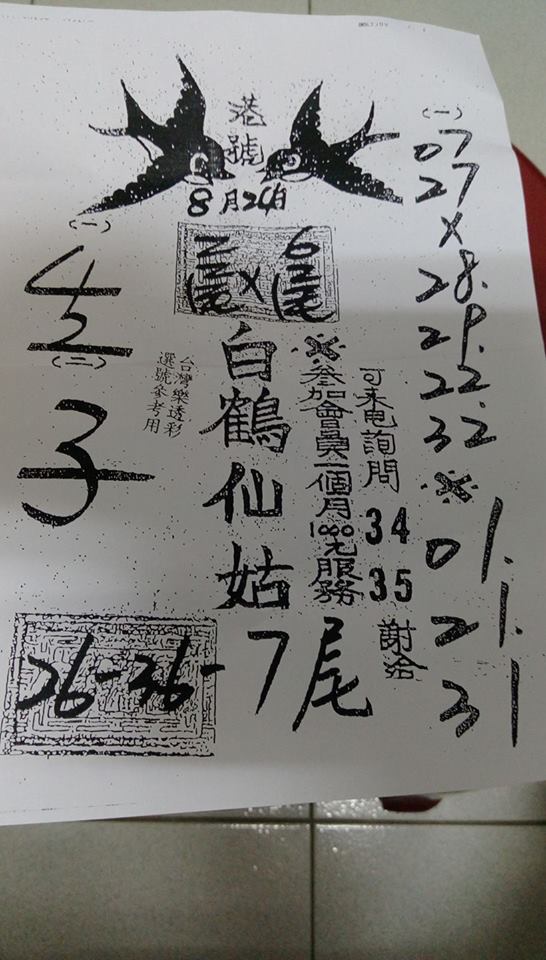 港號
8月24日
2尾X6尾
白鶴仙姑
26-36-7尾
台灣樂透彩
選號參考用
※參加會員一個月1000元服務
可來电詢問
34
35
謝洽
(一)
07
27
X
28.
29.
22.
32
※
01.
21.
31
(一)
(二)